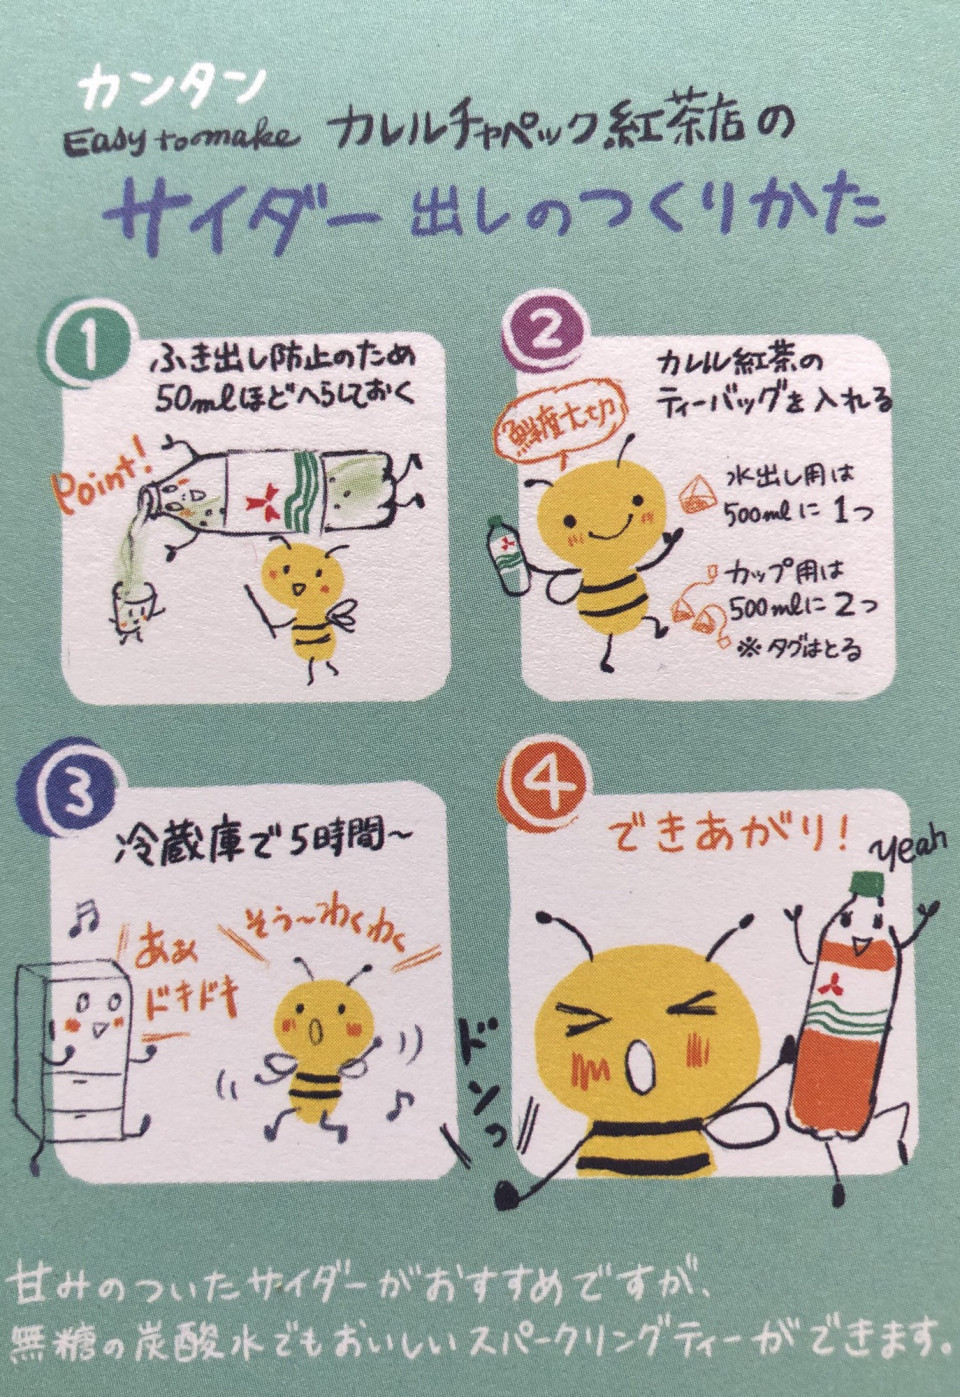 カンタン
Easy to make カレルチャペック紅茶店の
サイダー出しのつくりかた
1
ふき出し防止のため
50mlほどへらしておく
Point!
2
カレル紅茶の
ティーバッグを入れる
鮮度大切
水出し用は
500mlに1つ
カップ用は
500mlに2つ
※タグはとる
3
冷蔵庫で5時間〜
そう〜わくわく
あぁ
ドキドキ
4
できあがり!
yeah
ドンっ
甘みのついたサイダーがおすすめですが、
無糖の炭酸水でもおいしいスパークリングティーができます。